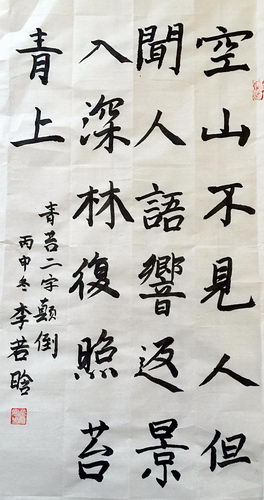 空山不見人但
聞人語響返景
入深林復照苔
青上
青苔二字顛倒
丙申冬李若晗